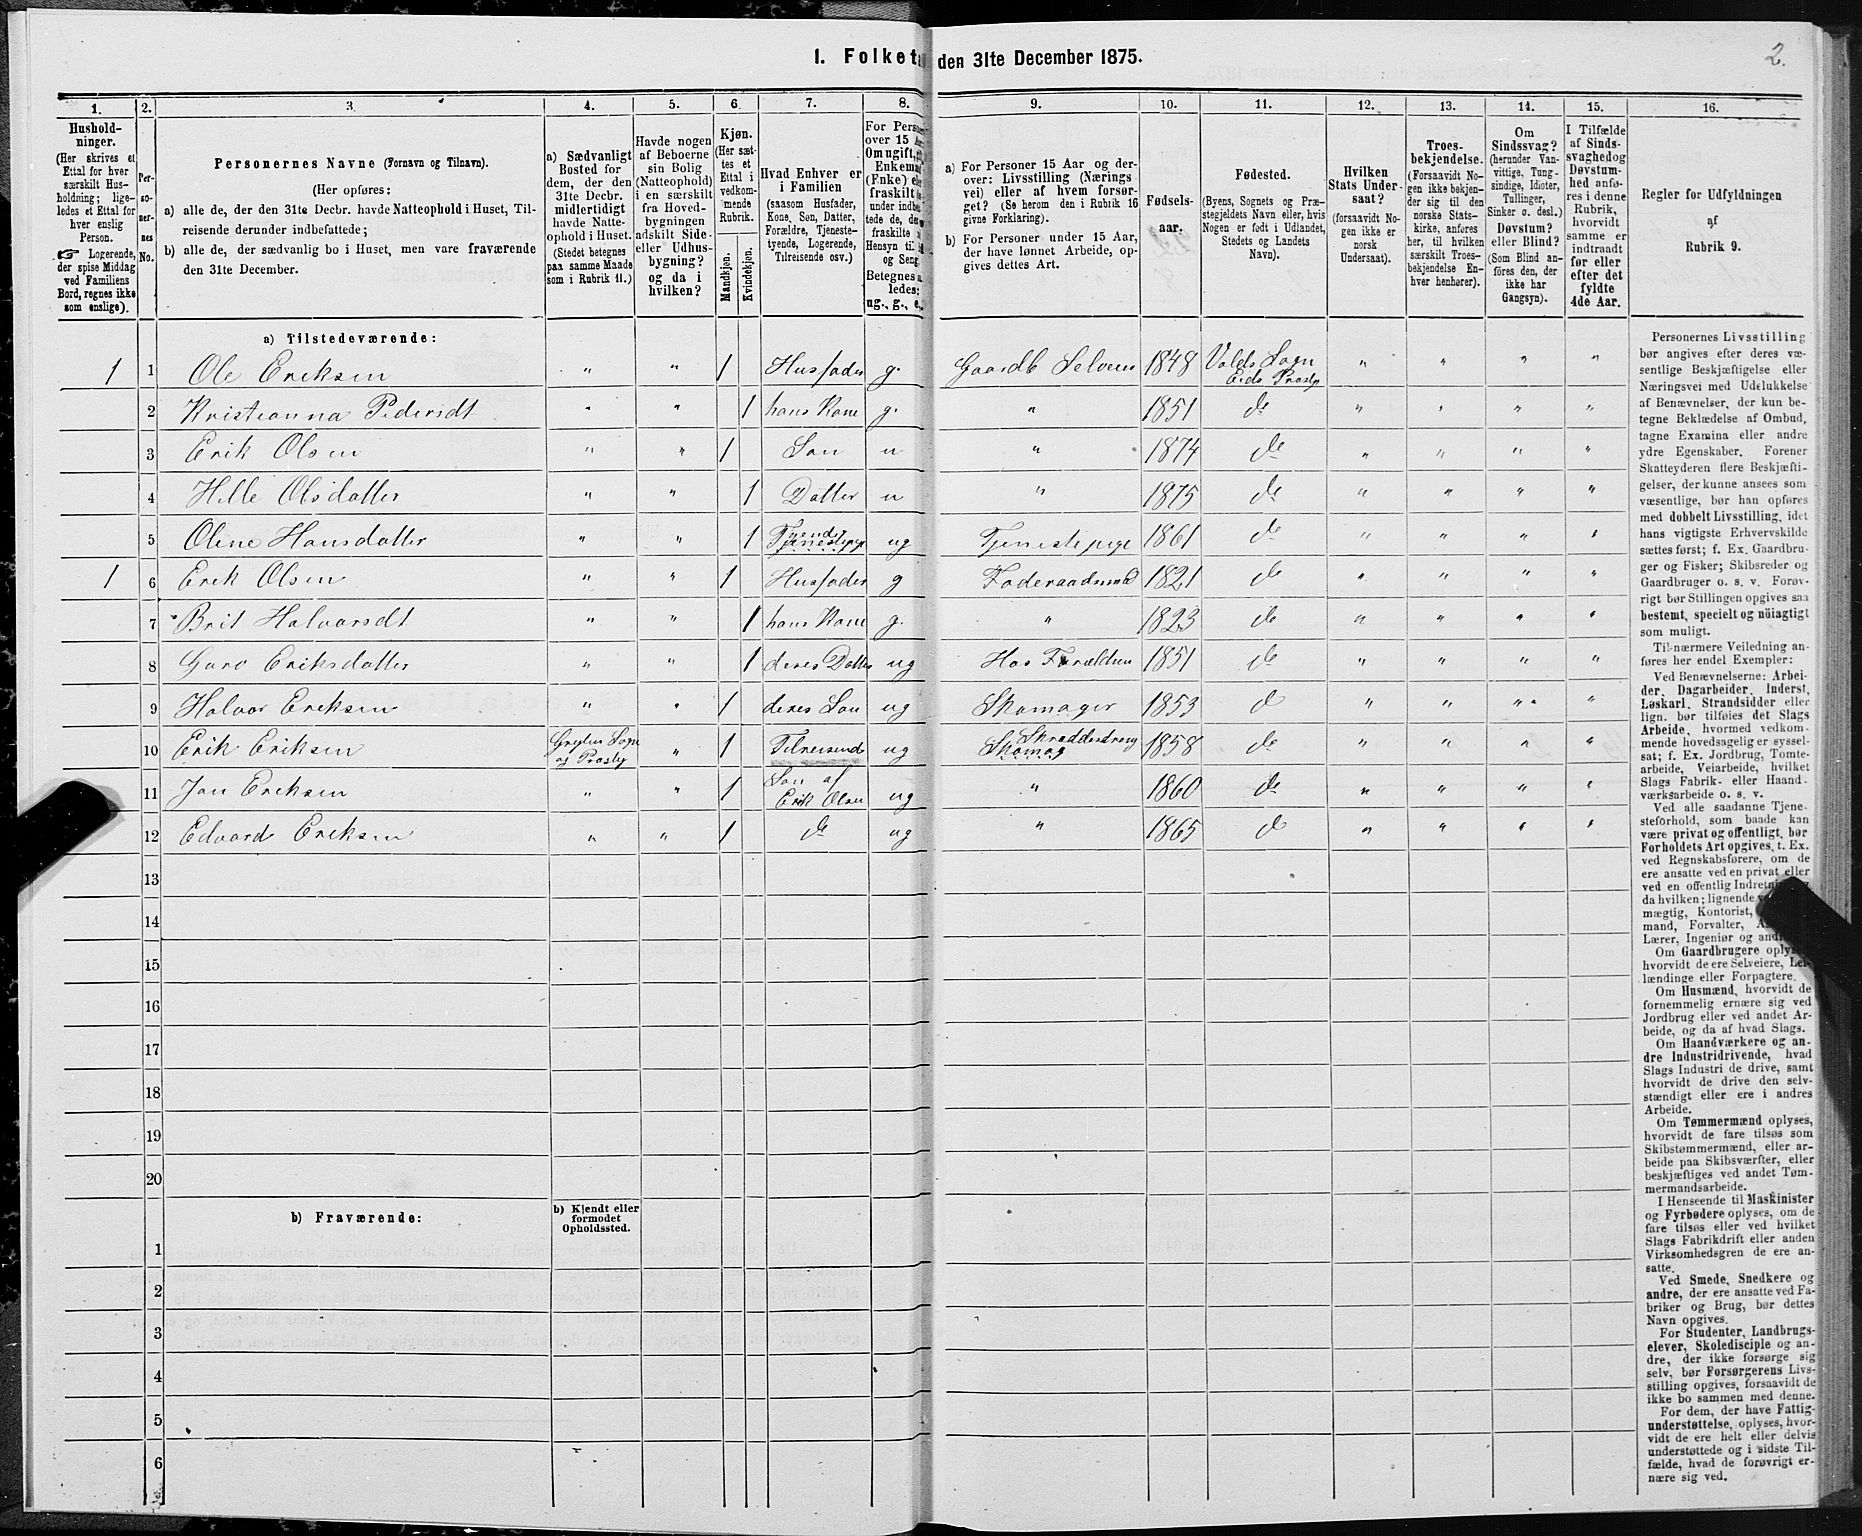 I. Folketal den 31te December 1875.
2.
1.
2.
3.
4.
5.
6.
7.
8.
9.
10.
11.
12.
13.
14.
15.
16.
Hushold-
ninger.
(Her skrives et
Ettal for hver
særskilt Hus-
holdning; lige-
ledes et Ettal for
hver enslig
Person.
☞ Logerende,
der spise Middag
ved Familiens
Bord, regnes ikke
som enslige).
Per-
so-
ner-
nes
No.
Personernes Navne (Fornavn og Tilnavn).
(Her opføres:
a) alle de, der den 31te Decbr. havde Natteophold i Huset, Til-
reisende derunder indbefattede;
b) alle de, der sædvanlig bo i Huset, men vare fraværende
den 31te December.
a) Sædvanligt
Bosted for
dem, der den
31te Decbr.
midlertidigt
havde Natte-
ophold i Huset.
(Stedet betegnes
paa samme Maade
som i Rubrik 11.)
Havde nogen
af Beboerne
sin Bolig
(Natteophold)
i en særskilt
fra Hoved-
bygningen
adskilt Side-
eller Udhus-
bygning?
og da i
hvilken?
Kjøn.
(Her sæt-
tes et
Ettal i
vedkom-
mende
Rubrik.
Mandkjøn.
Kvindekjøn.
Hvad Enhver er
i Familien
(saasom Husfader,
Kone, Søn, Datter,
Forældre, Tjeneste-
tyende, Logerende,
Tilreisende osv.)
For Pers
over 15 A
Om ugift,
Enkem
(Enke) e
fraskilt
under indb
tede de, de
fraskilte
Hensyn til
og Seng.
Betegnes
ledes:
ug., g., e.,
a) For Personer 15 Aar og der-
over: Livsstilling (Nærings
vei) eller af hvem forsør-
get? (Se herom den i Rubrik 16
givne Forklaring).
b) For Personer under 15 Aar,
der have lønnet Arbeide, op-
gives dettes Art.
Fødsels-
aar.
Fødested.
(Byens, Sognets og Præ-
stegjeldets Navn eller, hvis
Nogen er født i Udlandet,
Stedets og Landets
Navn).
Hvilken
Stats Under-
saat?
(forsaavidt No-
gen ikke er
norsk
Undersaat).
Troes-
bekjendelse.
(Forsaavidt No-
gen ikke bekjen-
der sig til den
norske Stats-
kirke, anføres
her, til hvilken
særskilt Troes-
bekjendelse En-
hver henhører).
Om
Sindssvag?
(herunder Van-
vittige, Tung-
sindige, Idioter,
Tullinger,
Sinker o. desl.)
Døvstum?
eller Blind?
(Som Blind an-
føres den, der
ikke har
Gangsyn).
I Tilfælde
af Sinds-
svaghed og
Døvstum-
hed anfø-
res i denne
Rubrik,
hvorvidt
samme er
indtraadt
før eller
efter det
fyldte
4de Aar.
Regler for Udfyldningen
af
Rubrik 9.
a) Tilstedeværende:
1 1 Ole Eriksen " " 1 Husfader g. Gaardb Selveier 1848 Volds Sogn Eids Præstg " " " "
2 Kristianna Pedersdt " " 1 hans Kone g. " 1851 do " " " "
3 Erik Olsen " " 1 Søn u " 1874 do " " " "
4 Hille Olsdatter " " 1 Datter u " 1875 do " " " "
5 Oline Hansdatter " " 1 Tjenestepige ug Tjenestepige 1861 do " " " "
1 6 Erik Olsen " " 1 Husfader g Føderaadsmd 1821 do " " " "
7 Brit Halvorsdt " " 1 hans Kone g. " 1823 do " " " "
8 Guro Eriksdatter " " 1 deres Datter ug Hos Forældren 1851 do " " " "
9 Halvor Eriksen " " 1 deres Søn ug Skomager 1853 do " " " "
10 Erik Eriksen Gryten Sogn og Præstg " 1 Tilreisende ug Skomag Skræddedreng 1858 do " " " "
11 Jon Eriksen " " 1 Søn af Erik Olsen ug " 1860 do " " " "
12 Edvard Eriksen " " 1 do ug " 1865 do " " " "
13
14
15
16
17
18
19
20
b) Fraværende:
b) Kjendt eller
formodet
Opholdssted.
1
2
3
4
5
6
Personernes Livsstilling
bør angives efter deres væ-
sentlige Beskjæftigelse eller
Næringsvei med Udelukkelse
af Benævnelser, der kun be-
tegne Beklædelse af Ombud,
tagne Examina eller andre
ydre Egenskaber. Forener
Skatteyderen flere Beskjæfti-
gelser, der kunne ansees som
væsentlige, bør han opføres
med dobbelt Livsstilling, idet
hans vigtigste Erhvervskilde
sættes først; f. Ex. Gaardbru-
ger og Fisker; Skibsreder og
Gaardbruger o. s. v. Forøv-
rigt bør Stillingen opgives saa
bestemt, specielt og nöiagtigt
som muligt.
Til nærmere Veiledning an-
føres her endel Exempler:
Ved Benævnelserne: Arbei-
der, Dagarbeider, Inderst,
Løskarl, Strandsidder eller
lign. bør tilføies det Slags
Arbeide, hvormed vedkom-
mende hovedsagelig er syssel-
sat; f. Ex. Jordbrug, Tomte-
arbeide, Veiarbeide, hvilket
Slags Fabrik- eller Haand-
værksarbeide o. s. v.
Ved alle saadanne Tjene-
steforhold, som baade kan
være privat og offentligt, bør
Forholdets Art opgives, t. Ex.
ved Regnskabsførere, om de
ere ansatte ved en privat eller
ved en offentlig Indretni
da hvilken; lignende
mægtig, Kontorist,
mand, Forvalter,
Lærer, Ingeniør og and
Om Gaardbrugere oplys
hvorvidt de ere Selveiere, Lei-
lændinge eller Forpagtere.
Om Husmænd, hvorvidt de
fornemmelig ernære sig ved
Jordbrug eller ved andet Ar-
beide, og da af hvad Slags.
Om Haandværkere og an-
dre Industridrivende, hvad
Slags Industri de drive, samt
hvorvidt de drive den selv-
stændigt eller ere i andres
Arbeide.
Om Tømmermænd oplyses,
hvorvidt de fare tilsøs som
Skibstømmermænd, eller ar-
beide paa Skibsværfter, eller
beskjæftiges ved andet Tøm-
mermandsarbeide.
I Henseende til Maskinister
og Fyrbødere oplyses, om de
fare tilsøs eller ved hvilket
Slags Fabrikdrift eller anden
Virksomhedsgren de ere an-
satte.
Ved Smede, Snedkere og
andre, der ere ansatte ved Fa-
briker og Brug, bør dettes
Navn opgives.
For Studenter, Landbrugs-
elever, Skoledisciple og an-
dre, der ikke forsørge sig
selv, bør Forsørgerens Livs-
stilling opgives, forsaavidt de
ikke bo sammen med denne.
For dem, der have Fattig-
understøttelse, oplyses, hvor-
vidt de ere helt eller delvis
understøttede og i sidste Til-
fælde, hvad de forøvrigt er-
nære sig ved.